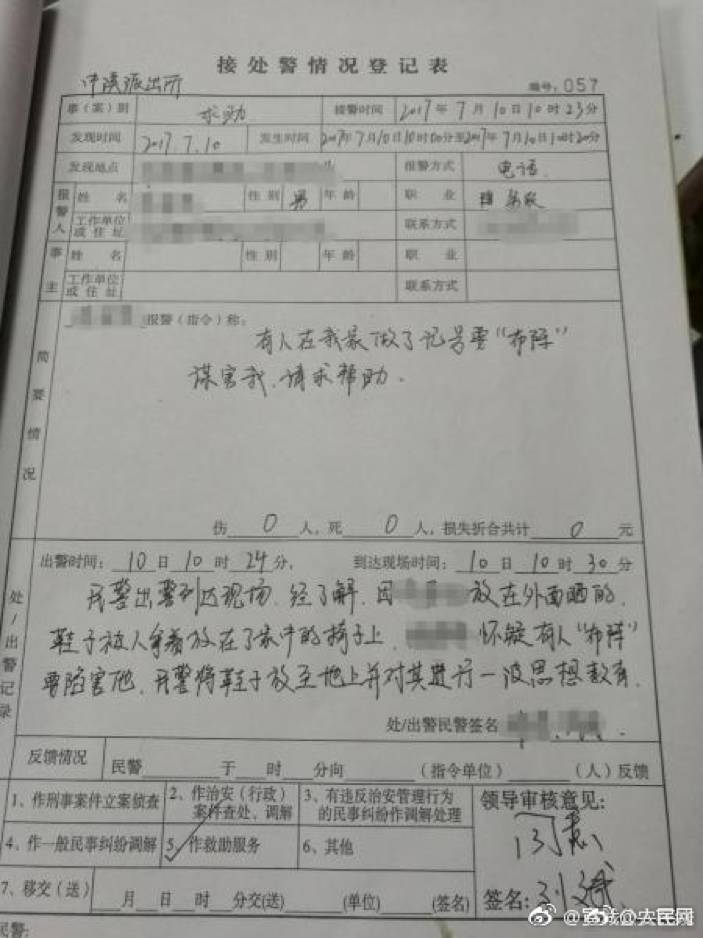 接处警情况登记表
中溪派出所 编号：057
事（案）别 求助 接警时间 2017年7月10日10时23分
发现时间 2017.7.10 发生时间 2017年7月10日10时00分至2017年7月10日10时20分
发现地点 报警方式 电话
报警人 姓名 性别 男 年龄 职业
工作单位或住址 联系方式
事主 姓名 性别 年龄 职业
工作单位或住址 联系方式
简要情况
报警（指令）称：
有人在我家做了记号要“布阵”
谋害我，请求帮助.
伤 0 人，死 0 人，损失折合共计 0 元
处/出警记录
出警时间：10日10时24分， 到达现场时间：10日10时30分
民警出警到达现场.经了解，因 放在外面晒的
鞋子被人拿着放在了家中的椅子上， 怀疑有人“布阵”
要陷害他，民警将鞋子放至地上并对其进行一波思想教育.
处/出警民警签名
反馈情况 民警 于 时 分向 （指令单位） （人）反馈
1、作刑事案件立案侦查 2、作治安（行政）案件查处、调解 3、有违反治安管理行为的民事纠纷作调解处理 领导审核意见：
4、作一般民事纠纷调解 5、作救助服务 6、其他
7、移交（送） 月 日 时 分交(送) (单位) (签名) 签名：
民警：
@央民网